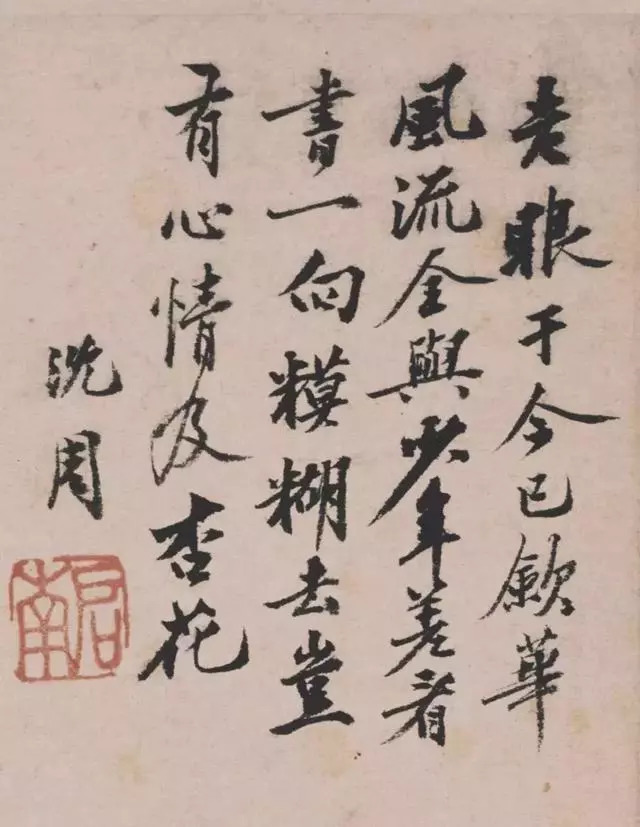 老眼于今已歛華
風流全與少年差看
書一向糢糊去豈
有心情及杏花
沈周
啓南